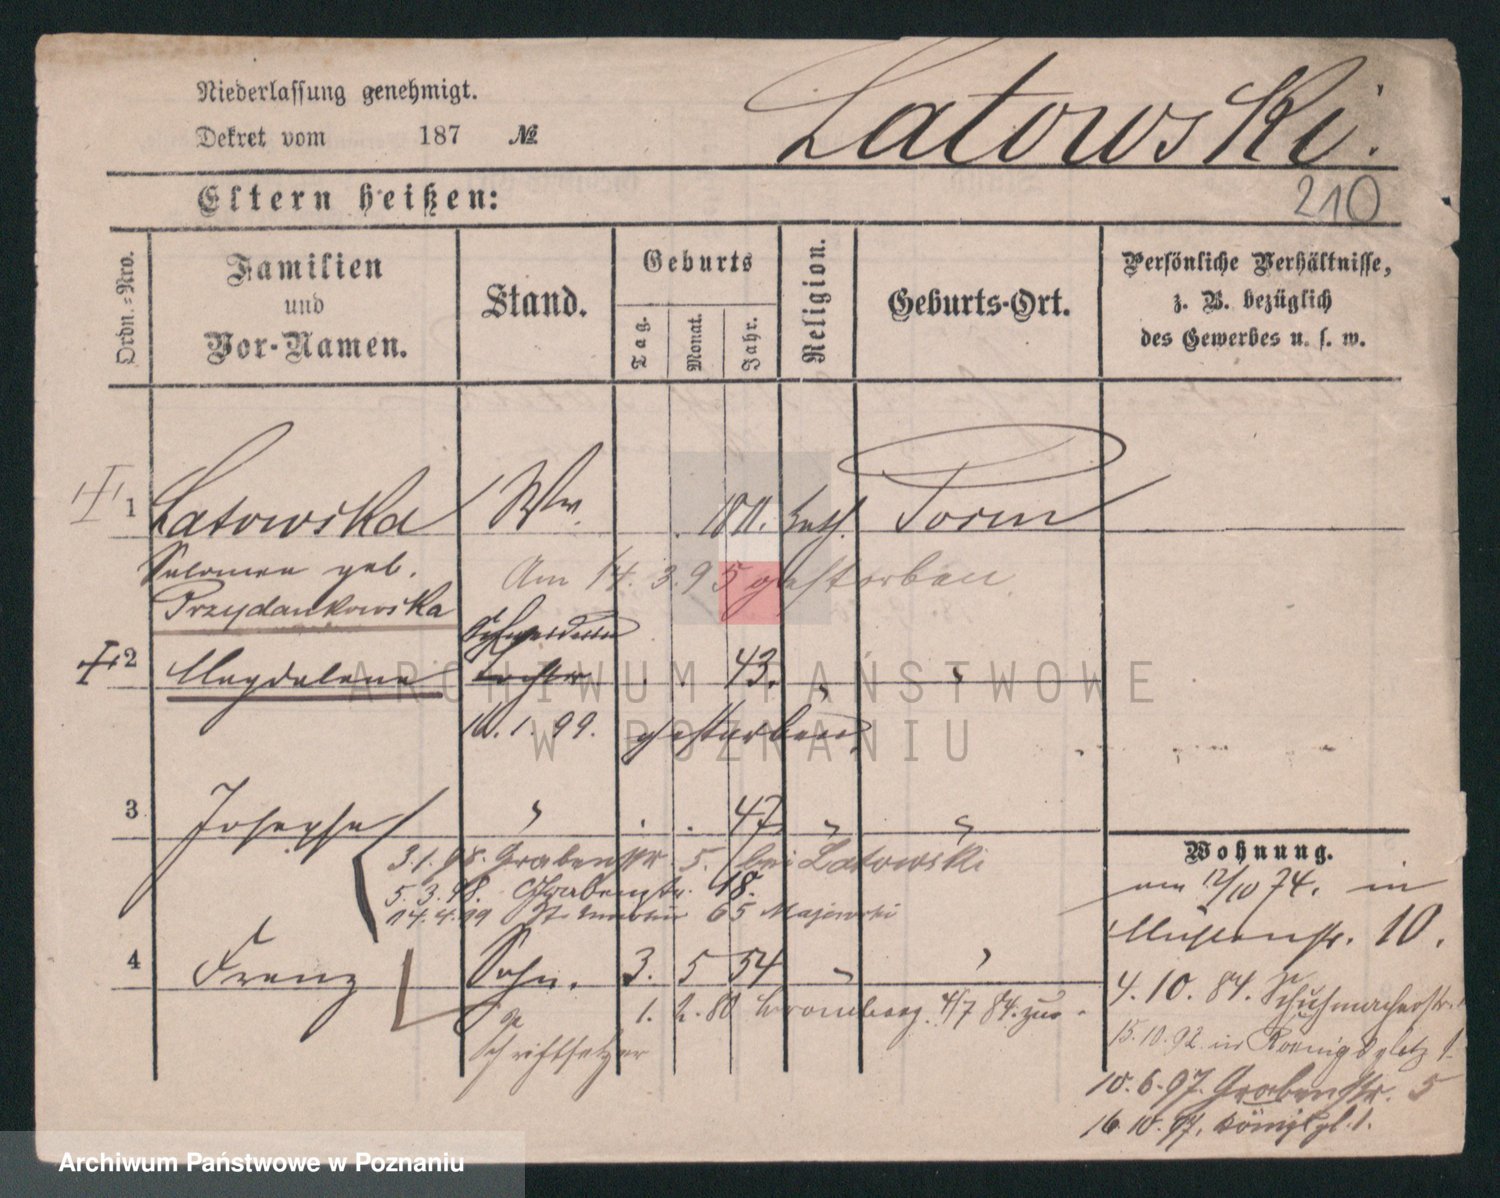 Niederlassung genehmigt.
Dekret vom 187 №
Latowski.
210
Eltern heißen:
Ordn.-Nro.
Familien
und
Vor-Namen.
Stand.
Geburts
Tag.
Monat.
Jahr.
Religion.
Geburts-Ort.
Persönliche Verhältnisse,
z. B. bezüglich
des Gewerbes u. s. w.
1 Latowska Ww. 1811. kath. Posen
Salomea geb. Am 14.3.95 gestorben.
Przydankowska
2 Magdalena Tochter . . 43. " "
16.1.99. gestorben
3 Josepha " . . 47 " "
3.1.98. Grabenstr. 5. bei Latowski
5.3.98. Grabenstr. 18.
14.4.99 St. Martin 65 Majewski
4 Franz Sohn. 3. 5 54 " "
1. 2. 80 Bromberg. 4/7 84. zur.
Schriftsetzer
Wohnung.
am 12/10 74. in
10.
4.10.84. Schuhmacherstr.
15.10.92. in Koenigsplatz 1.
10.6.97. Grabenstr. 5
16.10.97. Königspl. 1.
ARCHIWUM PAŃSTWOWE
W POZNANIU
Archiwum Państwowe w Poznaniu